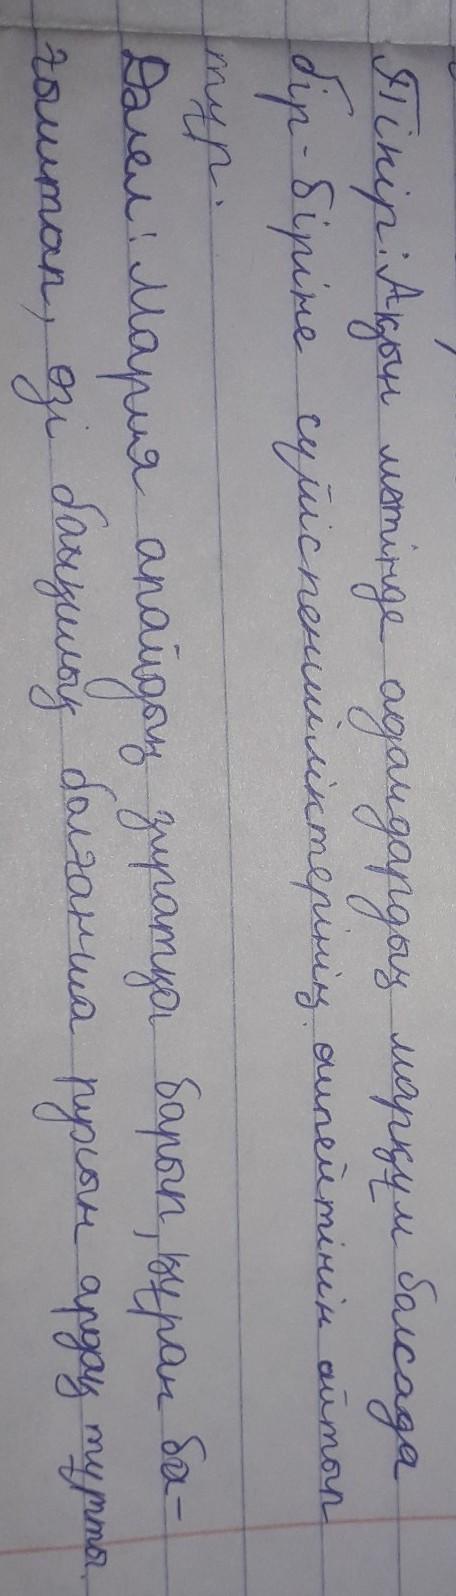 Пікір: Ақын мәтінде адамдардың марқұм болсада
бір-біріне сүйіспеншіліктерінің өшпейтінін айтып
тұр.
Дәлел: Мария апайдың зиратқа барып, құран ба-
ғыштап, өзі бақилық болғанша рухын ардақ тұтты.